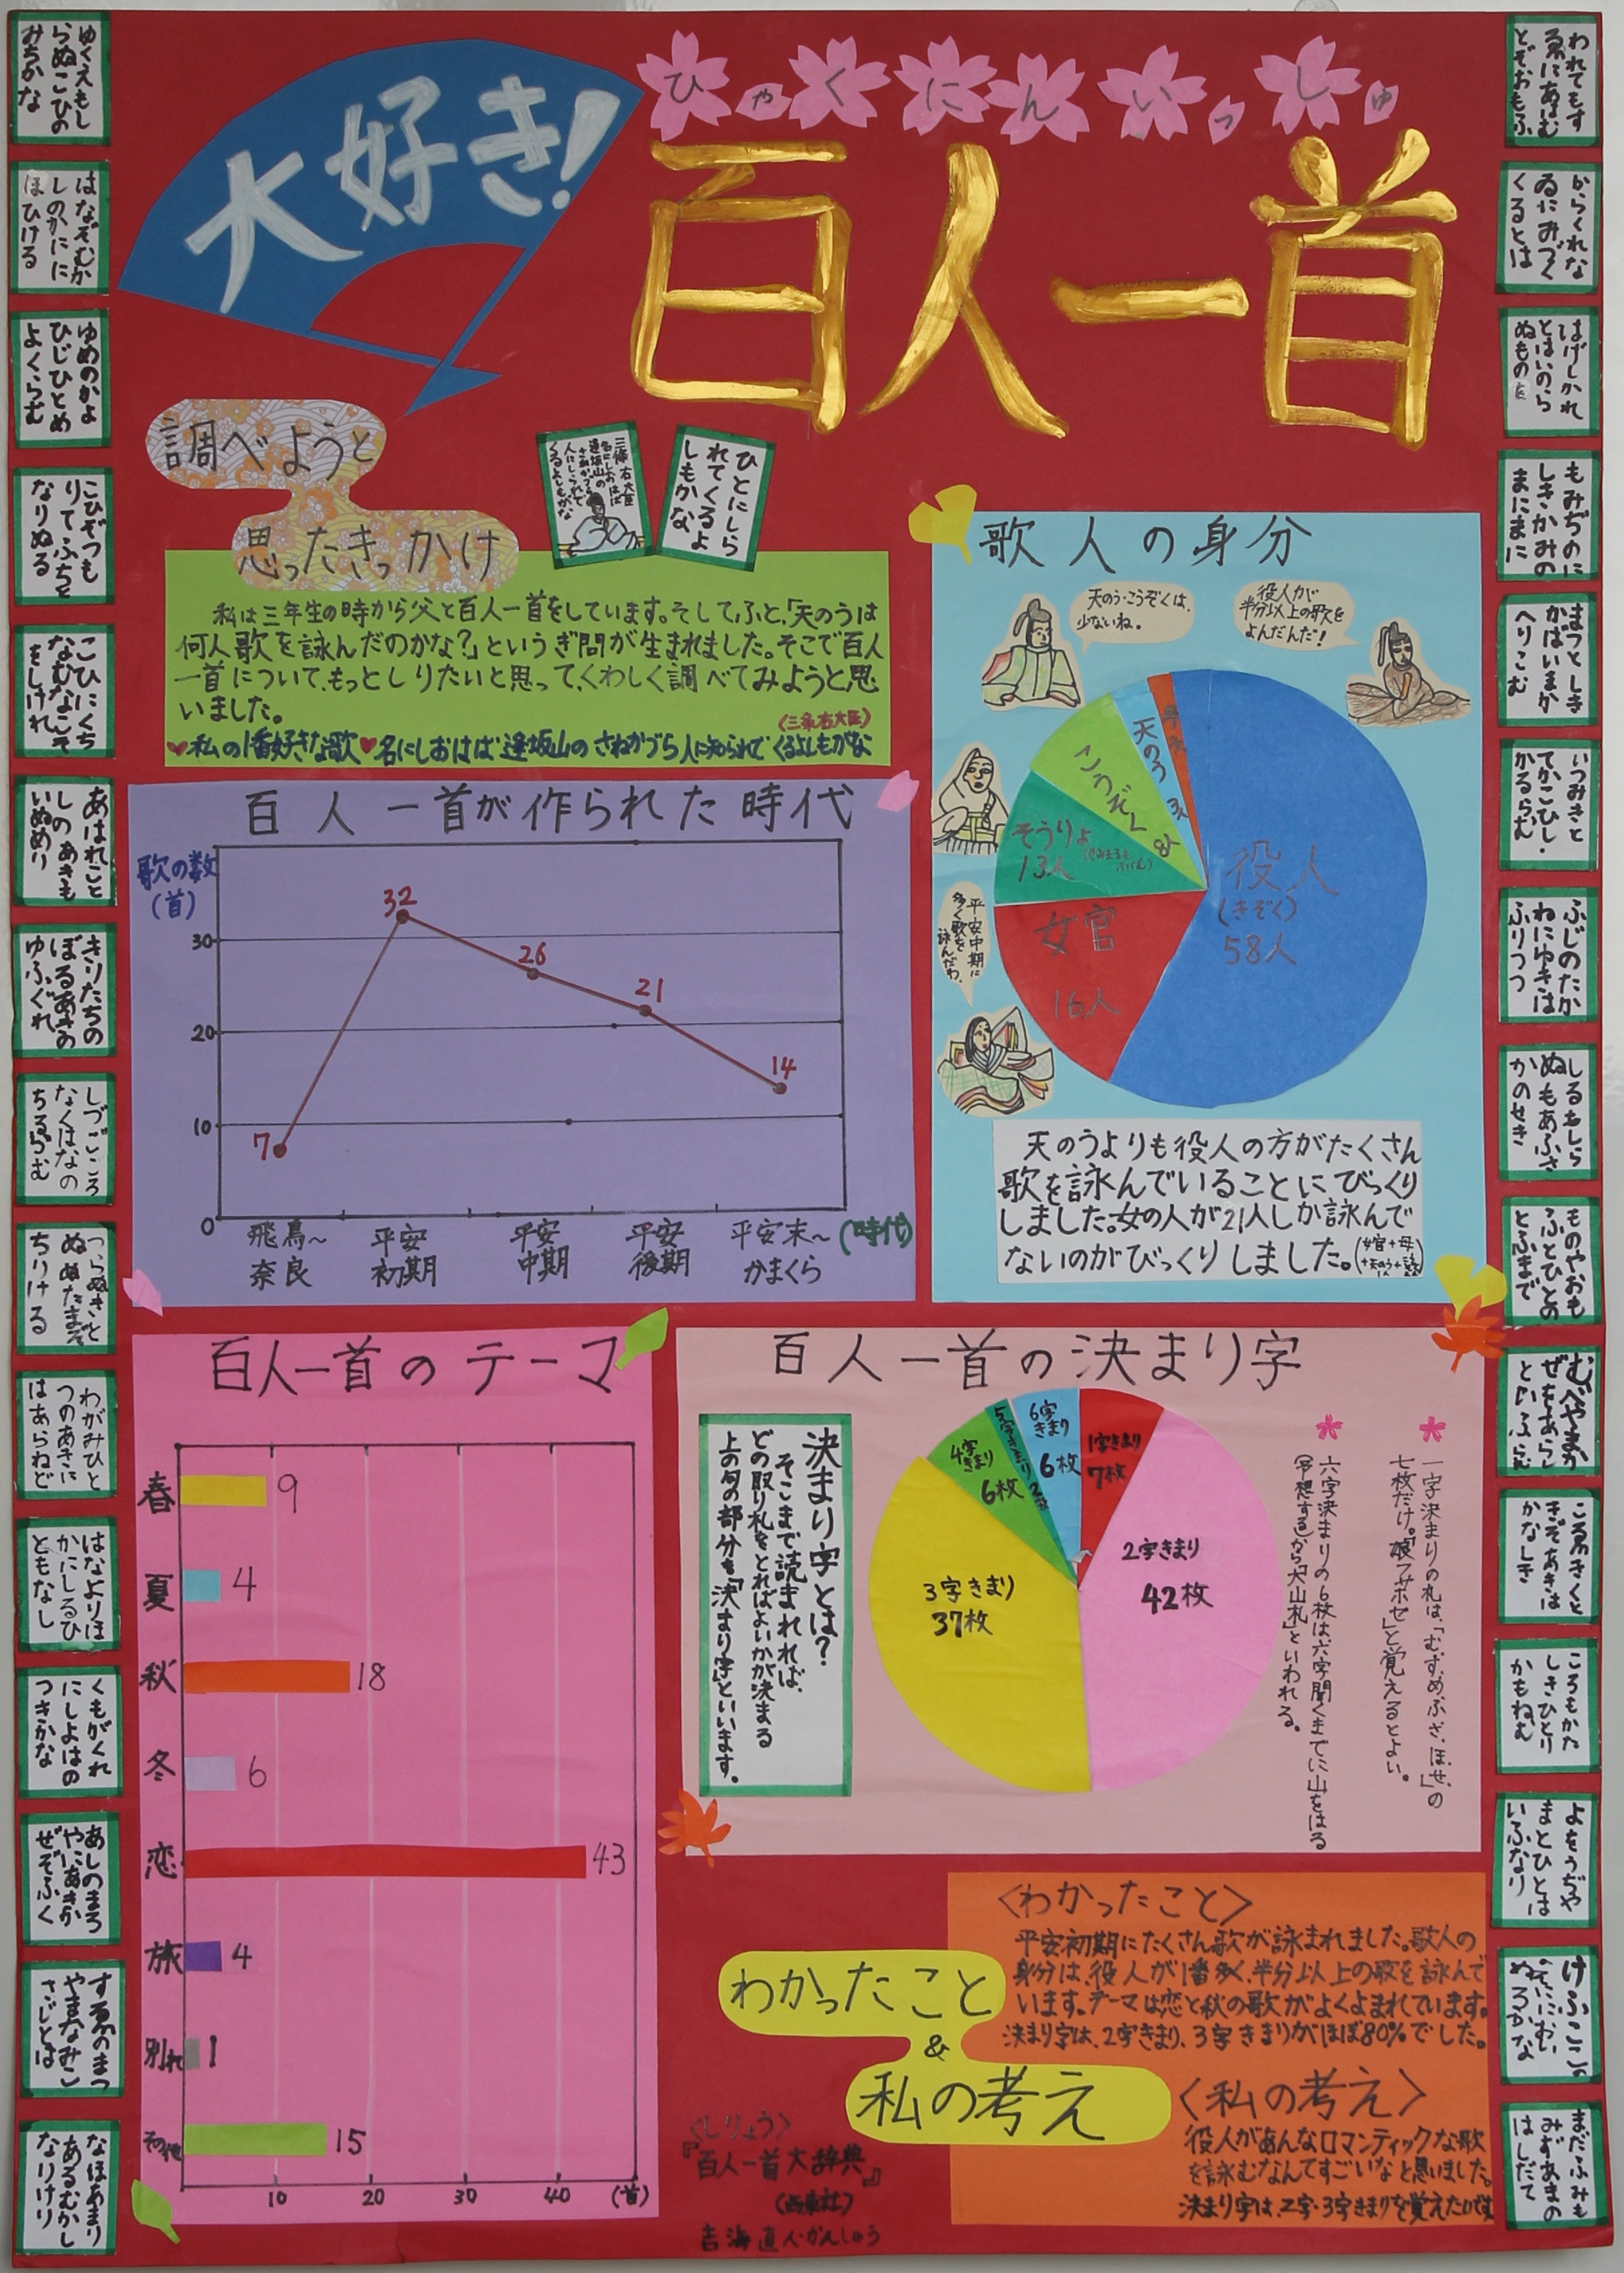 大好き!
ひゃくにんいっしゅ
百人一首
調べようと
思ったきっかけ
三條右大臣
名にしおはば
逢坂山の
さねかづら
人にしられで
くるよしもがな
ひとにしら
れてくるよ
しもかな
私は三年生の時から父と百人一首をしています。そしてふと、「天のうは
何人歌を詠んだのかな?」というぎ問が生まれました。そこで百人
一首について、もっとしりたいと思って、くわしく調べてみようと思
いました。
(三条右大臣)
♥私の1番好きな歌♥名にしおはば逢坂山のさねかづら人に知られでくるよしもがな
歌人の身分
天のう・こうぞくは、
少ないね。
役人が
半分以上の歌を
よんだんだ!
平安中期に
多く歌を
詠んだわ。
役人
(きぞく)
58人
女官
16人
そうりょ
13人
こうぞく
8人
天のう
天のうよりも役人の方がたくさん
歌を詠んでいることにびっくり
しました。女の人が21人しか詠んで
ないのがびっくりしました。
百人一首が作られた時代
歌の数
(首)
30
20
10
0
7
32
26
21
14
飛鳥~
奈良
平安
初期
平安
中期
平安
後期
平安末~
かまくら
(時代)
百人一首のテーマ
春 9
夏 4
秋 18
冬 6
恋 43
旅 4
別れ 1
その他 15
10 20 30 40 (首)
百人一首の決まり字
1字きまり
7枚
2字きまり
42枚
3字きまり
37枚
4字きまり
6枚
5字きまり
2枚
6字きまり
6枚
一字決まりの札は、「むすめふさ、ほせ、」の
七枚だけ。「娘フサホセ」と覚えるとよい。
六字決まりの6枚は六字聞くまでに山をはる
(予想する)から「大山札」といわれる。
決まり字とは?
そこまで読まれれば、
どの取り札をとればよいかが決まる
上の句の部分を「決まり字」といいます。
わかったこと
&
私の考え
<わかったこと>
平安初期にたくさん歌が詠まれました。歌人の
身分は、役人が1番多く、半分以上の歌を詠んで
います。テーマは恋と秋の歌がよくよまれています。
決まり字は、2字きまり、3字きまりがほぼ80%でした。
<私の考え>
役人があんなロマンティックな歌
を詠むなんてすごいなと思いました。
決まり字は、2字・3字きまりを覚えたいです
<しりょう>
『百人一首大辞典』
(西東社)
吉海直人・かんしゅう
ゆくえもし
らぬこひの
みちかな
はなぞむか
しのかにに
ほひける
ゆめのかよ
ひじひとめ
よくらむ
こひぞつも
りてふちと
なりぬる
こひにくち
なむなこそ
をしけれ
あはれこと
しのあきも
いぬめり
きりたちの
ぼるあきの
ゆふぐれ
しづごころ
なくはなの
ちるらむ
つらぬきと
めぬたまぞ
ちりける
わがみひと
つのあきに
はあらねど
はなよりほ
かにしるひ
ともなし
くもがくれ
にしよはの
つきかな
あしのまろ
やにあきか
ぜぞふく
すゑのまつ
やまなみこ
さじとは
なほあまり
あるむかし
なりけり
われてもす
ゑにあはむ
とぞおもふ
からくれな
ゐにみづく
くるとは
はげしかれ
とはいのら
ぬものを
もみぢのに
しきかみの
まにまに
まつとしき
かばいまか
へりこむ
いつみきと
てかこひし
かるらむ
ふじのたか
ねにゆきは
ふりつつ
しるもしら
ぬもあふさ
かのせき
ものやおも
ふとひとの
とふまで
むべやまか
ぜをあらし
といふらん
こゑきくと
きぞあきは
かなしき
ころもかた
しきひとり
かもねむ
よをうぢや
まとひとは
いふなり
けふここの
まだふみも
みずあまの
はしだて